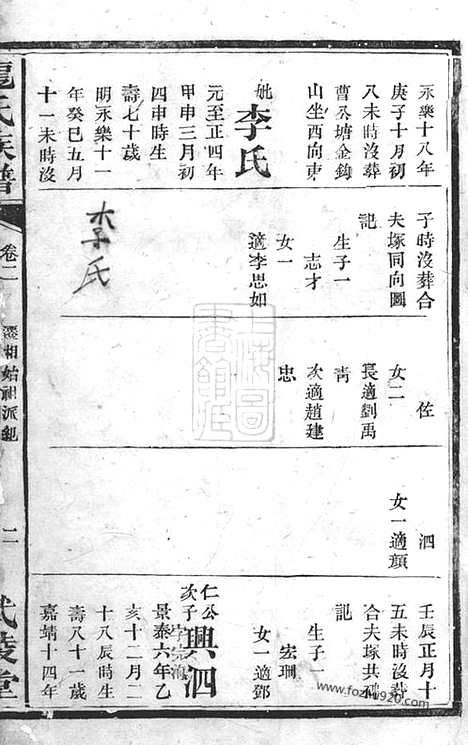 永樂十八年
庚子十月初
八未時沒葬
曹公塘金鈎
山坐西向東
妣李氏
元至正四年
甲申三月初
四申時生
壽七十歲
明永樂十一
年癸巳五月
十一未時沒
子時沒葬合
夫塚同向圖
記
生子一
志才
女一
適李思如
李氏
佐
女二
長適劉禹
靑
次適趙建
忠
泗
女一適顏
壬辰正月十
五未時沒葬
合夫塚共碑
記
生子一
宏珊
女一適鄧
仁公次子興泗
景泰六年乙
亥十二月二
十八辰時生
壽八十一歲
嘉靖十四年
龍氏族譜
卷二
相始祖派
二
武陵堂
www.fozhu920.com